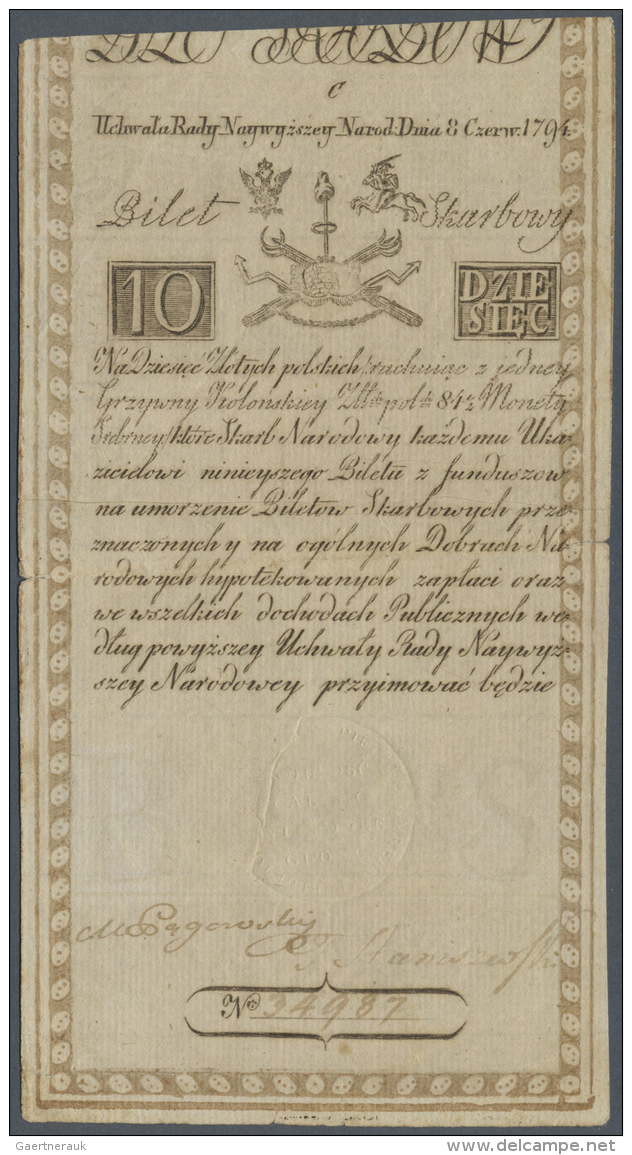 BILET SKARBOWY
C
Uchwała Rady Naywyższey Narod: Dnia 8 Czerw. 1794.
Bilet Skarbowy
10 DZIE
SIĘC
Na Dziesięć Złotych polskich /:rachuiąc z jedney
Grzywny Kolońskiey Złł: pol: 84½ Monety
Srebrney:/ które Skarb Narodowy każdemu Uka-
zicielowi ninieyszego Biletu z funduszow
na umorzenie Biletow Skarbowych prze-
znaczonych y na ogólnych Dobrach Na-
rodowych hypotekowanych zapłaci oraz
we wszelkich dochodach Publicznych we-
dług powyższey Uchwały Rady Naywyż-
szey Narodowey przyimować będzie
M Pągowski
F Staniszewski
No 34987
Gaertnerauk
delcampe.net